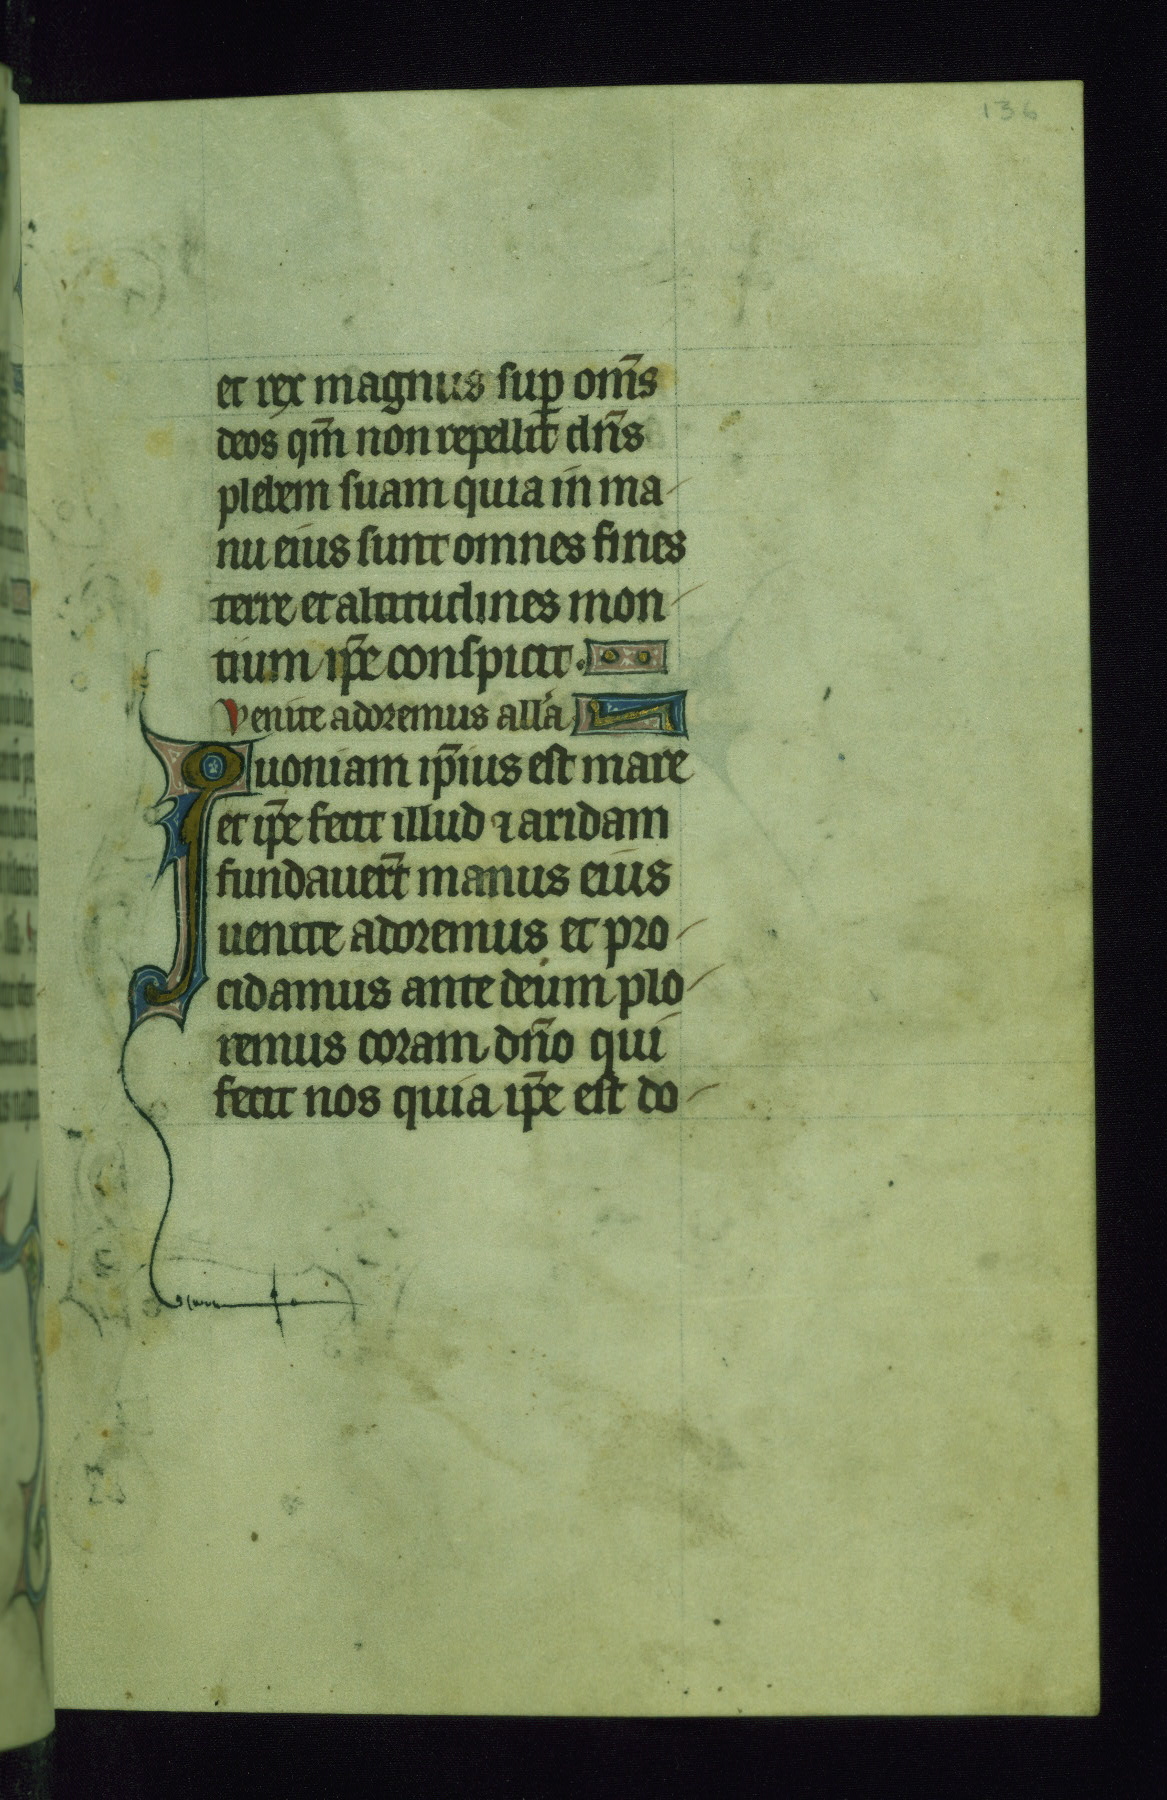 136
et rex magnus sup om̅s
deos qm̅ non repellit dn̅s
plebem suam quia in ma
nu eius sunt omnes fines
terre et altitudines mon
tium ip̅e conspicit.
Venite adoremus alla̅
Quoniam ip̅ius est mare
et ip̅e fecit illud ⁊ aridam
fundauert̅ manus eius
uenite adoremus et pro
cidamus ante deum plo
remus coram dn̅o qui
fecit nos quia ip̅e est do